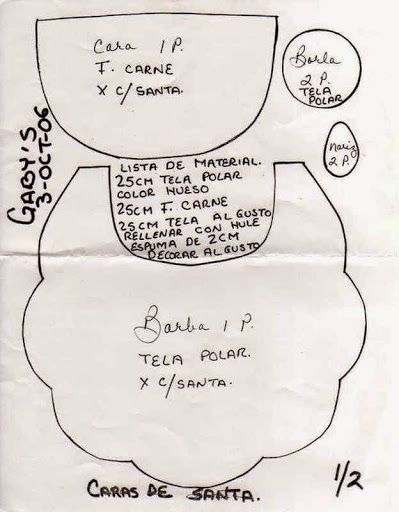 Cara 1 P.
F. CARNE
X C/SANTA.
Borla
2 P.
TELA
POLAR
Nariz
2 P.
GABY'S
3-OCT-06
LISTA DE MATERIAL.
25CM TELA POLAR
COLOR HUESO
25CM F. CARNE
25CM TELA AL GUSTO
RELLENAR CON HULE
ESPUMA DE 2CM
DECORAR AL GUSTO
Barba 1 P.
TELA POLAR.
X C/SANTA.
CARAS DE SANTA.
1/2